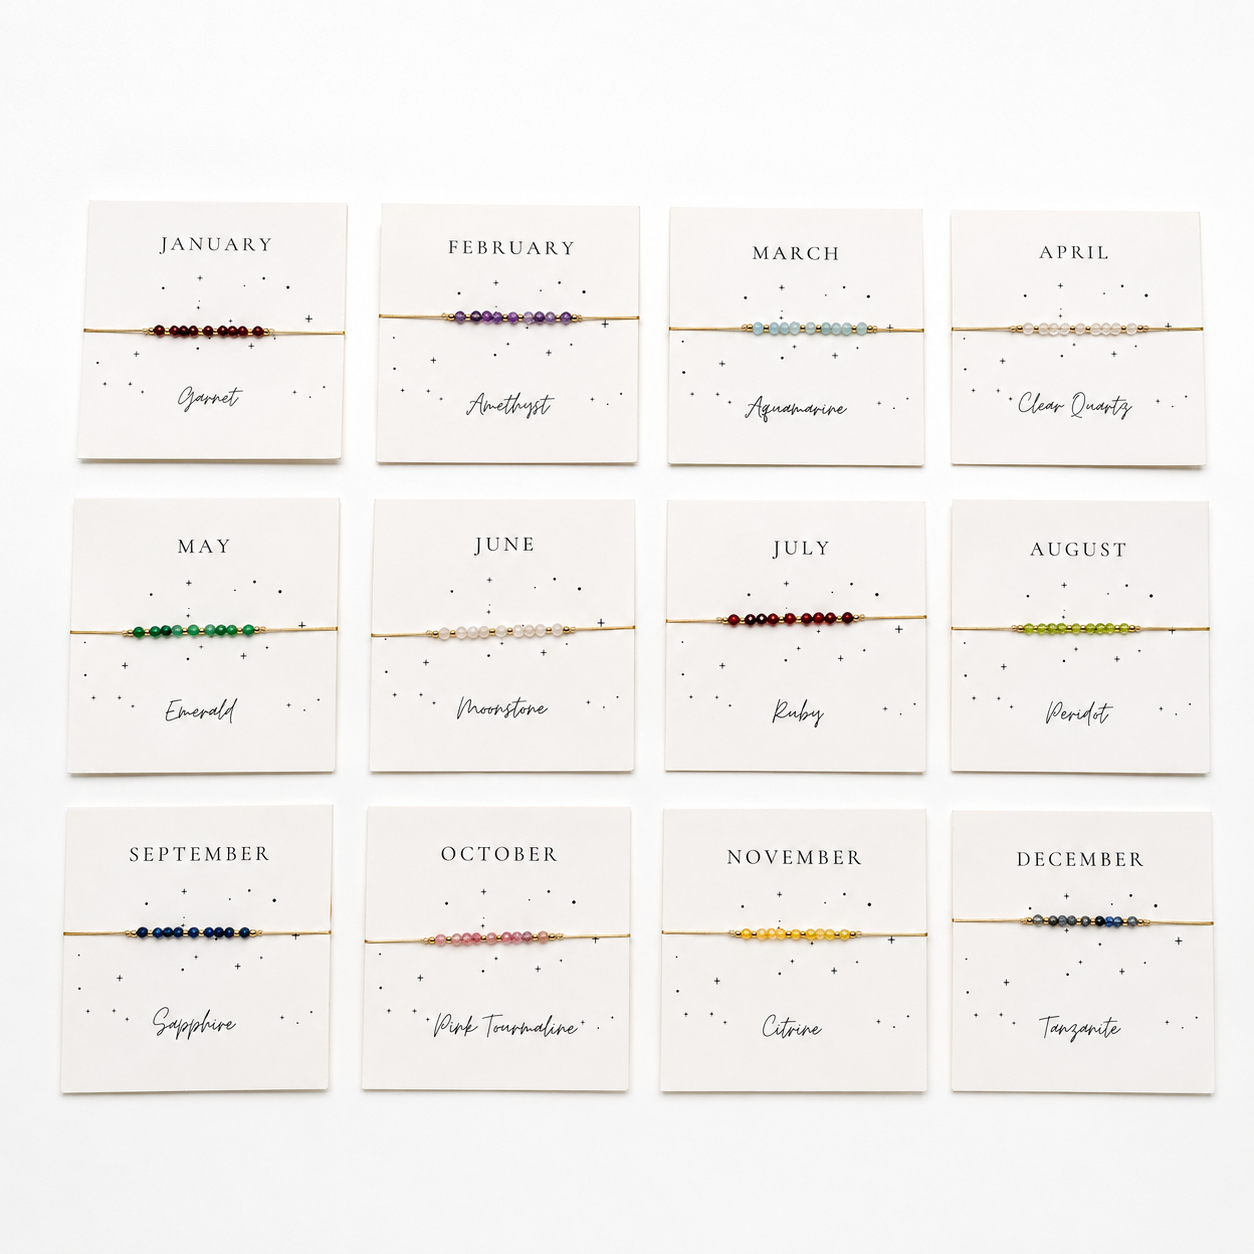 JANUARY
Garnet
FEBRUARY
Amethyst
MARCH
Aquamarine
APRIL
Clear Quartz
MAY
Emerald
JUNE
Moonstone
JULY
Ruby
AUGUST
Peridot
SEPTEMBER
Sapphire
OCTOBER
Pink Tourmaline
NOVEMBER
Citrine
DECEMBER
Tanzanite